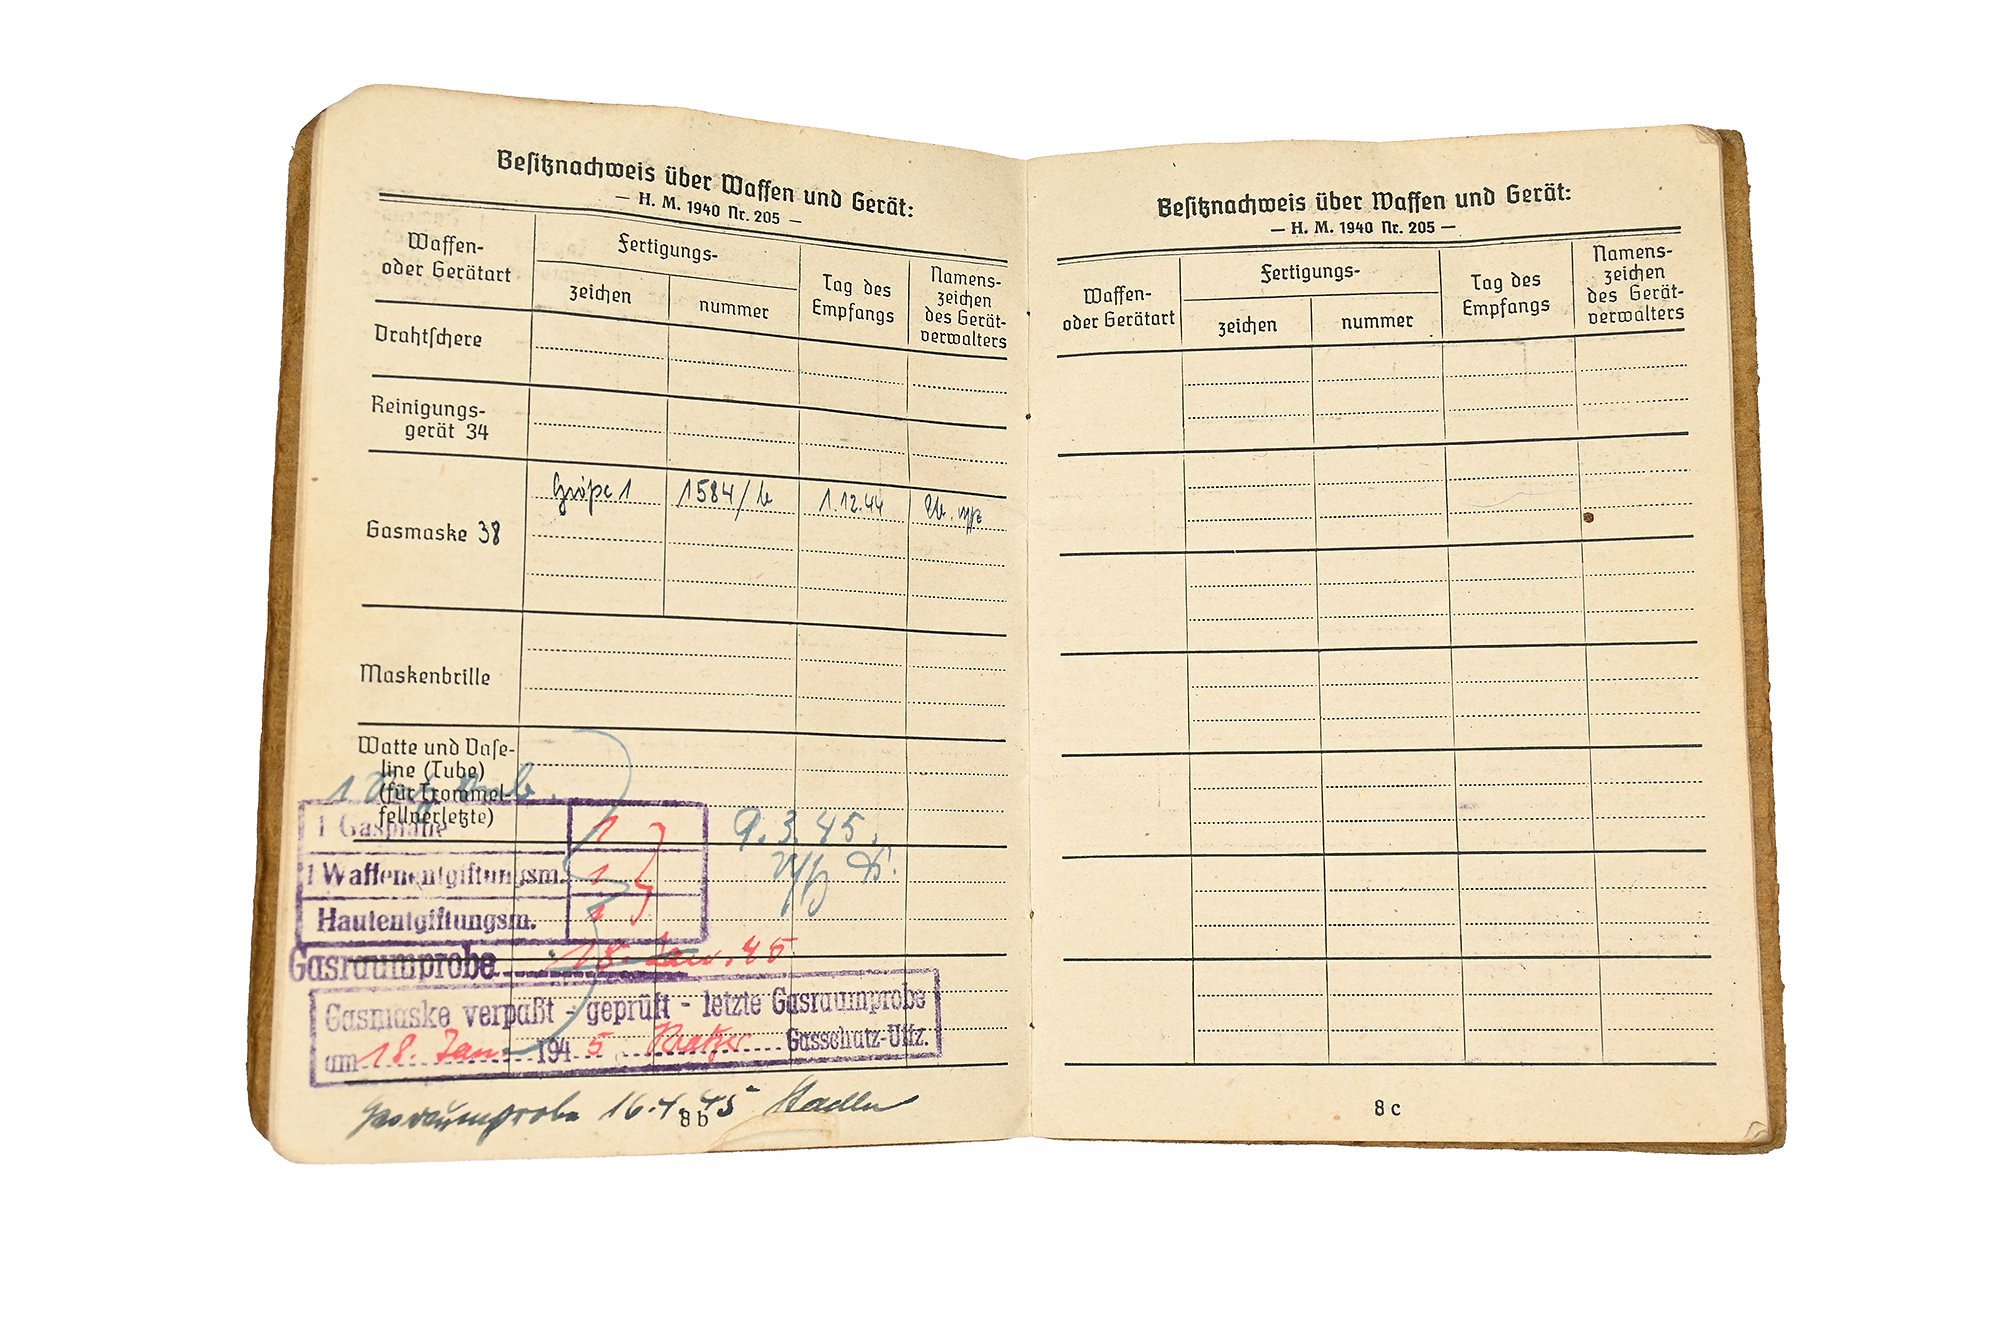 Besitznachweis über Waffen und Gerät:
— H. M. 1940 Nr. 205 —
Waffen-
oder Gerätart
Fertigungs-
zeichen
nummer
Tag des
Empfangs
Namens-
zeichen
des Gerät-
verwalters
Drahtschere
Reinigungs-
gerät 34
Gasmaske 38
Größe 1
1584/
1.12.44
Maskenbrille
Watte und Vase-
line (Tube)
(für Trommel-
fellverletzte)
1
1 Gasplane 1
1 Waffenentgiftungsm. 1
Hautentgiftungsm. 1
9.3.45.
Gasraumprobe 18. Jan. 45
Gasmaske verpaßt - geprüft - letzte Gasraumprobe
am 18. Jan. 1945 Gasschutz-Uffz.
Gasraumprobe 16.4.45 Stadler
8b
Besitznachweis über Waffen und Gerät:
— H. M. 1940 Nr. 205 —
Waffen-
oder Gerätart
Fertigungs-
zeichen
nummer
Tag des
Empfangs
Namens-
zeichen
des Gerät-
verwalters
8c